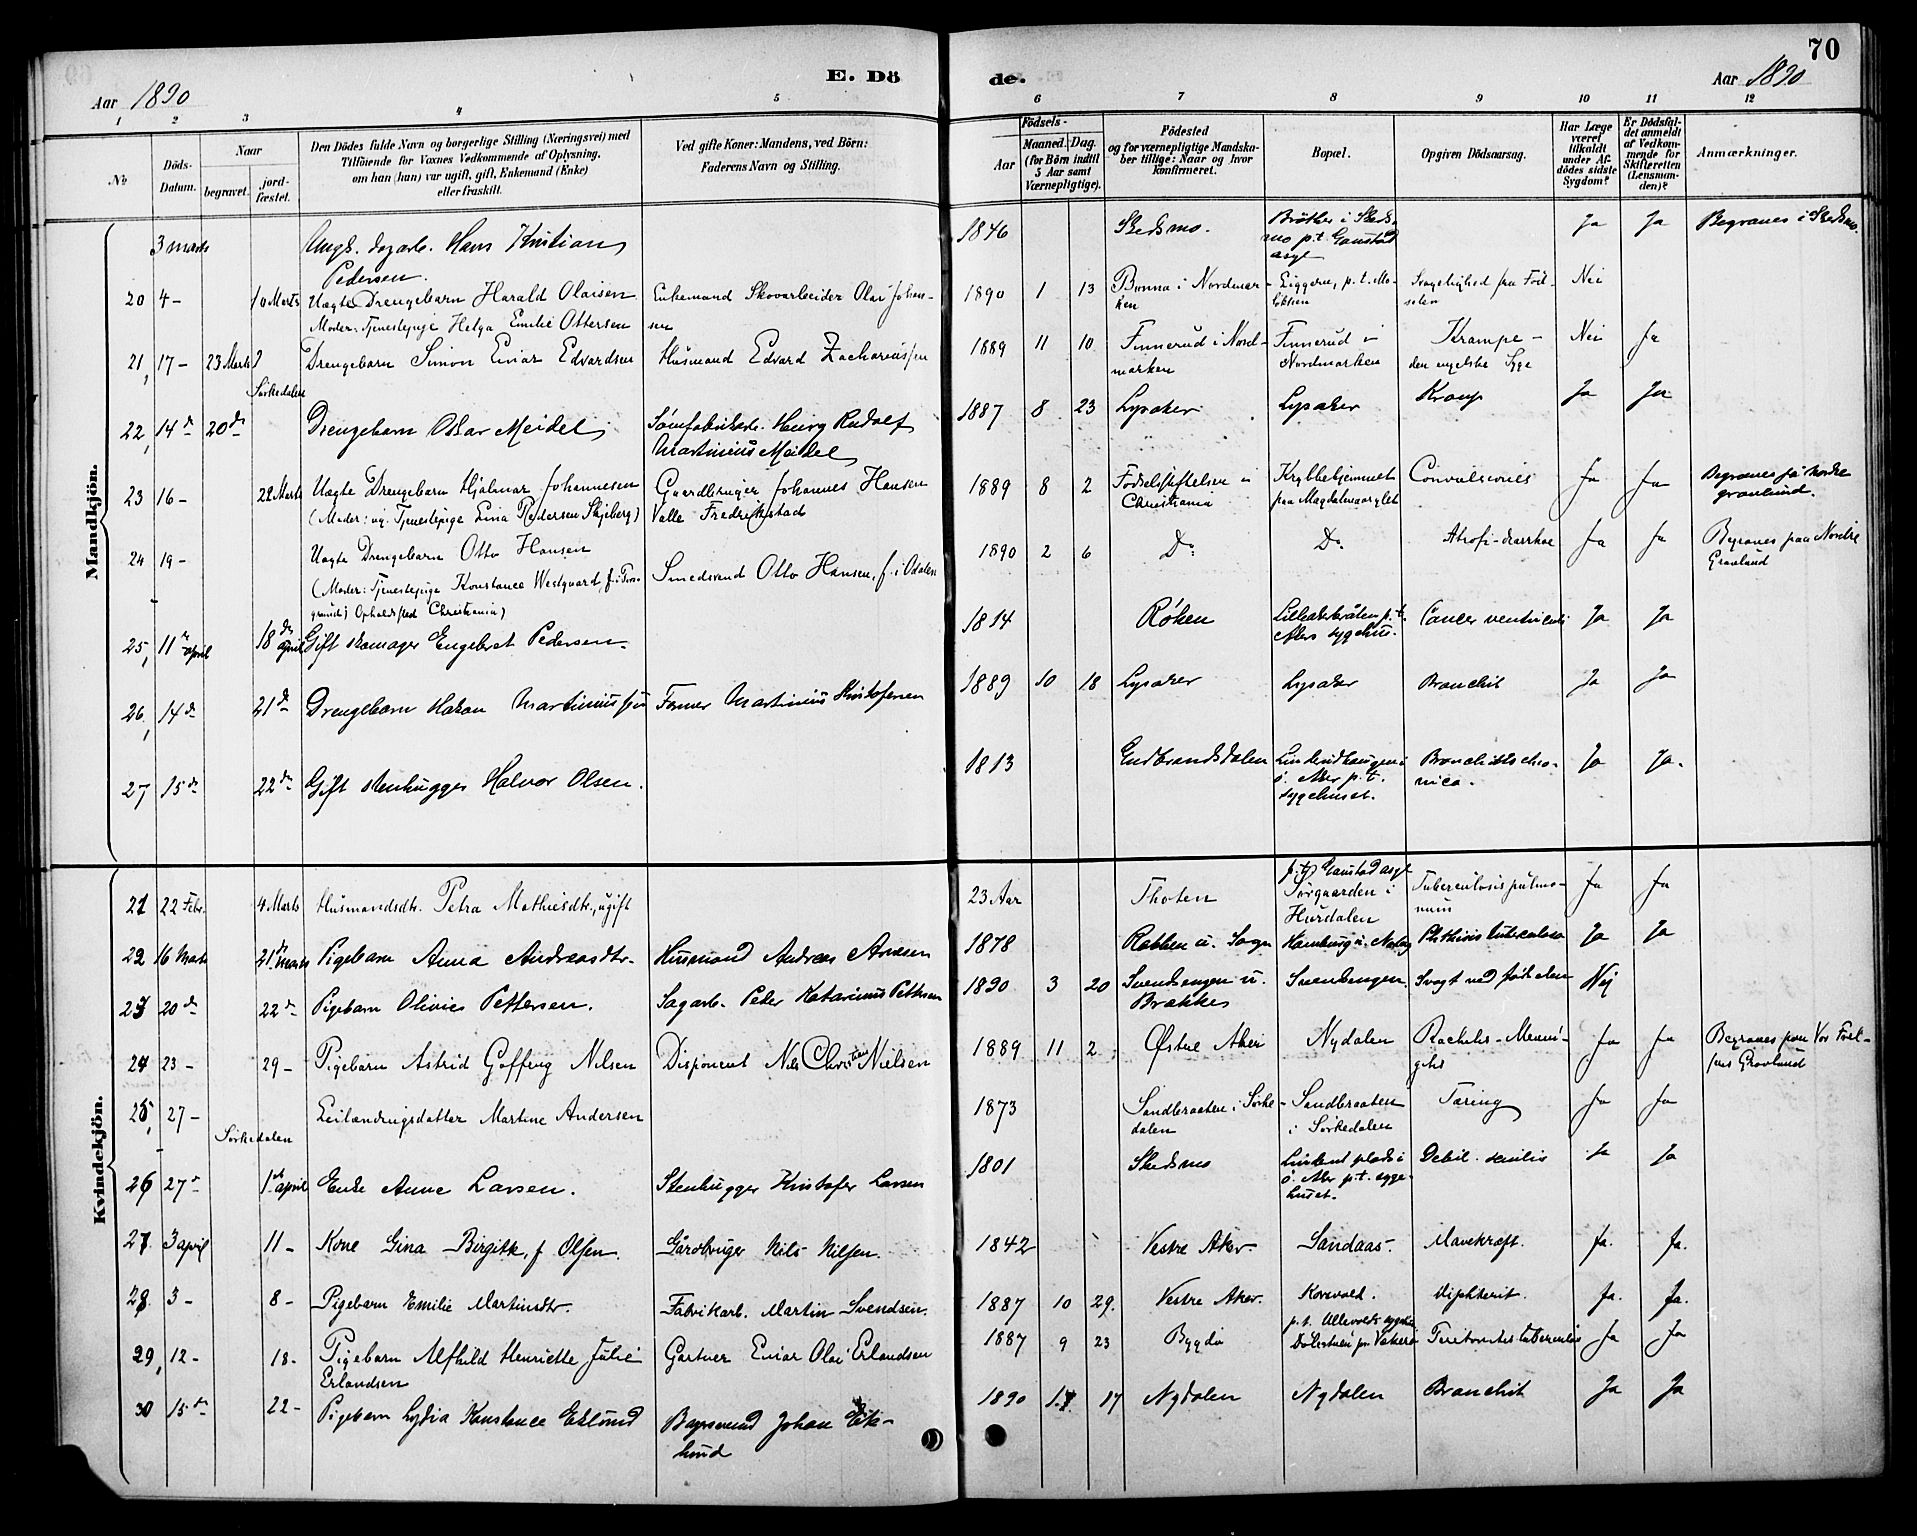 70
E. Dö de.
Aar 1890
Aar 1890
1 2 3 4 5 6 7 8 9 10 11 12
No
Döds-Datum.
Naar
begravet.
jord-fæstet.
Den Dödes fulde Navn og borgerlige Stilling (Næringsvei) med
Tilföiende for Voxnes Vedkommende af Oplysning,
om han (hun) var ugift, gift, Enkemand (Enke)
eller fraskilt.
Ved gifte Koner: Mandens, ved Börn:
Faderens Navn og Stilling.
Födsels-
Aar
Maaned.
Dag.
(for Börn indtil
5 Aar samt
Værnepligtige).
Födested
og for værnepligtige Mandska-
ber tillige: Naar og hvor
konfirmeret.
Bopæl.
Opgiven Dödsaarsag.
Har Læge
været
tilkaldt
under Af-
dödes sidste
Sygdom?
Er Dödsfal-
det anmeldt
af Vedkom-
mende for
Skifteretten
(Lensman-
den)?
Anmærkninger.
Mandkjön.
3 marts Ungk. dagarb. Hans Kristian Pedersen. 1846 Skedsmo. Bröther i Skeds-mo p.t. Gaustad asyl Ja Ja Begraves i Skedsmo.
20 4 - 10 Marts Uægte Drengebarn Harald Olaisen Enkemand Skovarbeider Olai Johan-sen 1890 1 13 Bonna i Nordmar-ken Svagelighed fra Föd-selen Nei
Moder: Tjenestepige Helga Emilie Ottersen
21, 17 - 23 Marts Sørkedalen Drengebarn Simon Einar Edvardsen Husmand Edvard Zachariassen 1889 11 10 Finnerud i Nord-marken Finnerud i Nordmarken Krampe - den engelske Syge Nei Ja
22, 14 de 20 de Drengebarn Oskar Meidel Sømfabrikarb. Rudolf Martinius Meidel 1887 8 23 Lysaker Lysaker Kroup Ja Ja
23 16 - 22 Marts Uægte Drengebarn Hjalmar Johannesen Gaardbruger Johannes Hansen Valle Fredrikstad 1889 8 2 Fødselsstiftelsen i Christiania Krybbehjemmet paa Magdalenaasylet Convulsiones Ja Ja Begraves på Nordre gravlund.
(Moder: ug. Tjenestepige Lina Pedersen Skjeberg)
24 19 - Uægte Drengebarn Otto Hansen Smedsvend Otto Hansen, f. i Odalen 1890 2 6 Do Do Atrofi-diarrhoe Ja Ja Begraves paa Nordre Gravlund
(Moder: Tjenestepige Konstance Westgaard Opholdssted Christiania)
25, 11 te april 18 de april Gift skomager Engebret Pedersen. 1814 Røken p.t. Akers sygehus. Cancer ventriculi Ja Ja
26, 14 de 21 de Drengebarn Hakon Martiniussen Former Martinius Kristofersen 1889 10 18 Lysaker Lysaker Bronchit Ja Ja
27 15 de 22 de Gift stenhugger Halvor Olsen. 1813 Gudbrandsdalen ö. Aker p.t. sygehuset. Bronchitis chro-nica. Ja Ja.
Kvindekjön.
21 22 Febr. 4 Marts Husmandsdtr. Petra Mathisdtr., ugift 23 Aar Thoten p.t. Gaustad asyl Sörgaarden i Hurdalen Tuberculosis pulmo-num Ja Ja
22 16 Marts 21 de Marts Pigebarn Anna Andreasdtr. Husmand Andreas Arnesen 1878 Rabben u. Sogn Phthisis tuberculosa Ja Ja
23 20 de 22 de Pigebarn Olivies Pettersen. Sagarb. Peder Katarinus Pettersen 1890 3 20 Svendsengen u. Brækkes Svendsengen Svagt ved fødselen Nej
24 23 - 29 - Pigebarn Astrid Goffeng Nilsen Disponent Nils Christian Nielsen 1889 11 2 Østre Aker Nydalen Rachitis - Menin-gitis Ja Ja Begraves paa Vor Frel-sers Gravlund
25, 27 - Sørkedalen Leilændingsdatter Martine Andersen 1873 Sandbraaten i Sørke-dalen Sandbraaten i Sørkedalen Tæring Ja Ja
26 27 de 1 ste april Enke Anne Larsen. Stenhugger Kristofer Larsen 1801 Skedsmo plads i ö. Aker p.t. syge-huset. Debil. senilis Ja Ja
27. 3 april 11 - Kone Gina Birgitte, f. Olsen. Gårdbruger Nils Nilsen. 1842 Vestre Aker. Sandaas. Mavekræft. Ja. Ja.
28. 3 - 8 - Pigebarn Emilie Martinsdtr. Fabrikarb. Martin Svendsen. 1887 10 29. Vestre Aker. Korsvold. Diphterit. Ja. Ja.
29, 12 - 18 - Pigebarn Alfhild Henriette Julie Erlandsen Gartner Einar Olai Erlandsen 1887 9 23 Bygdø p.t. Ullevolds sygehus Peritonitis tuberculos Ja Ja
30 15 de 22 - Pigebarn Lydia Konstance Eklund Bagersvend Johan Ek-lund 1890 1. 17 Nydalen Nydalen Bronchit Ja Ja